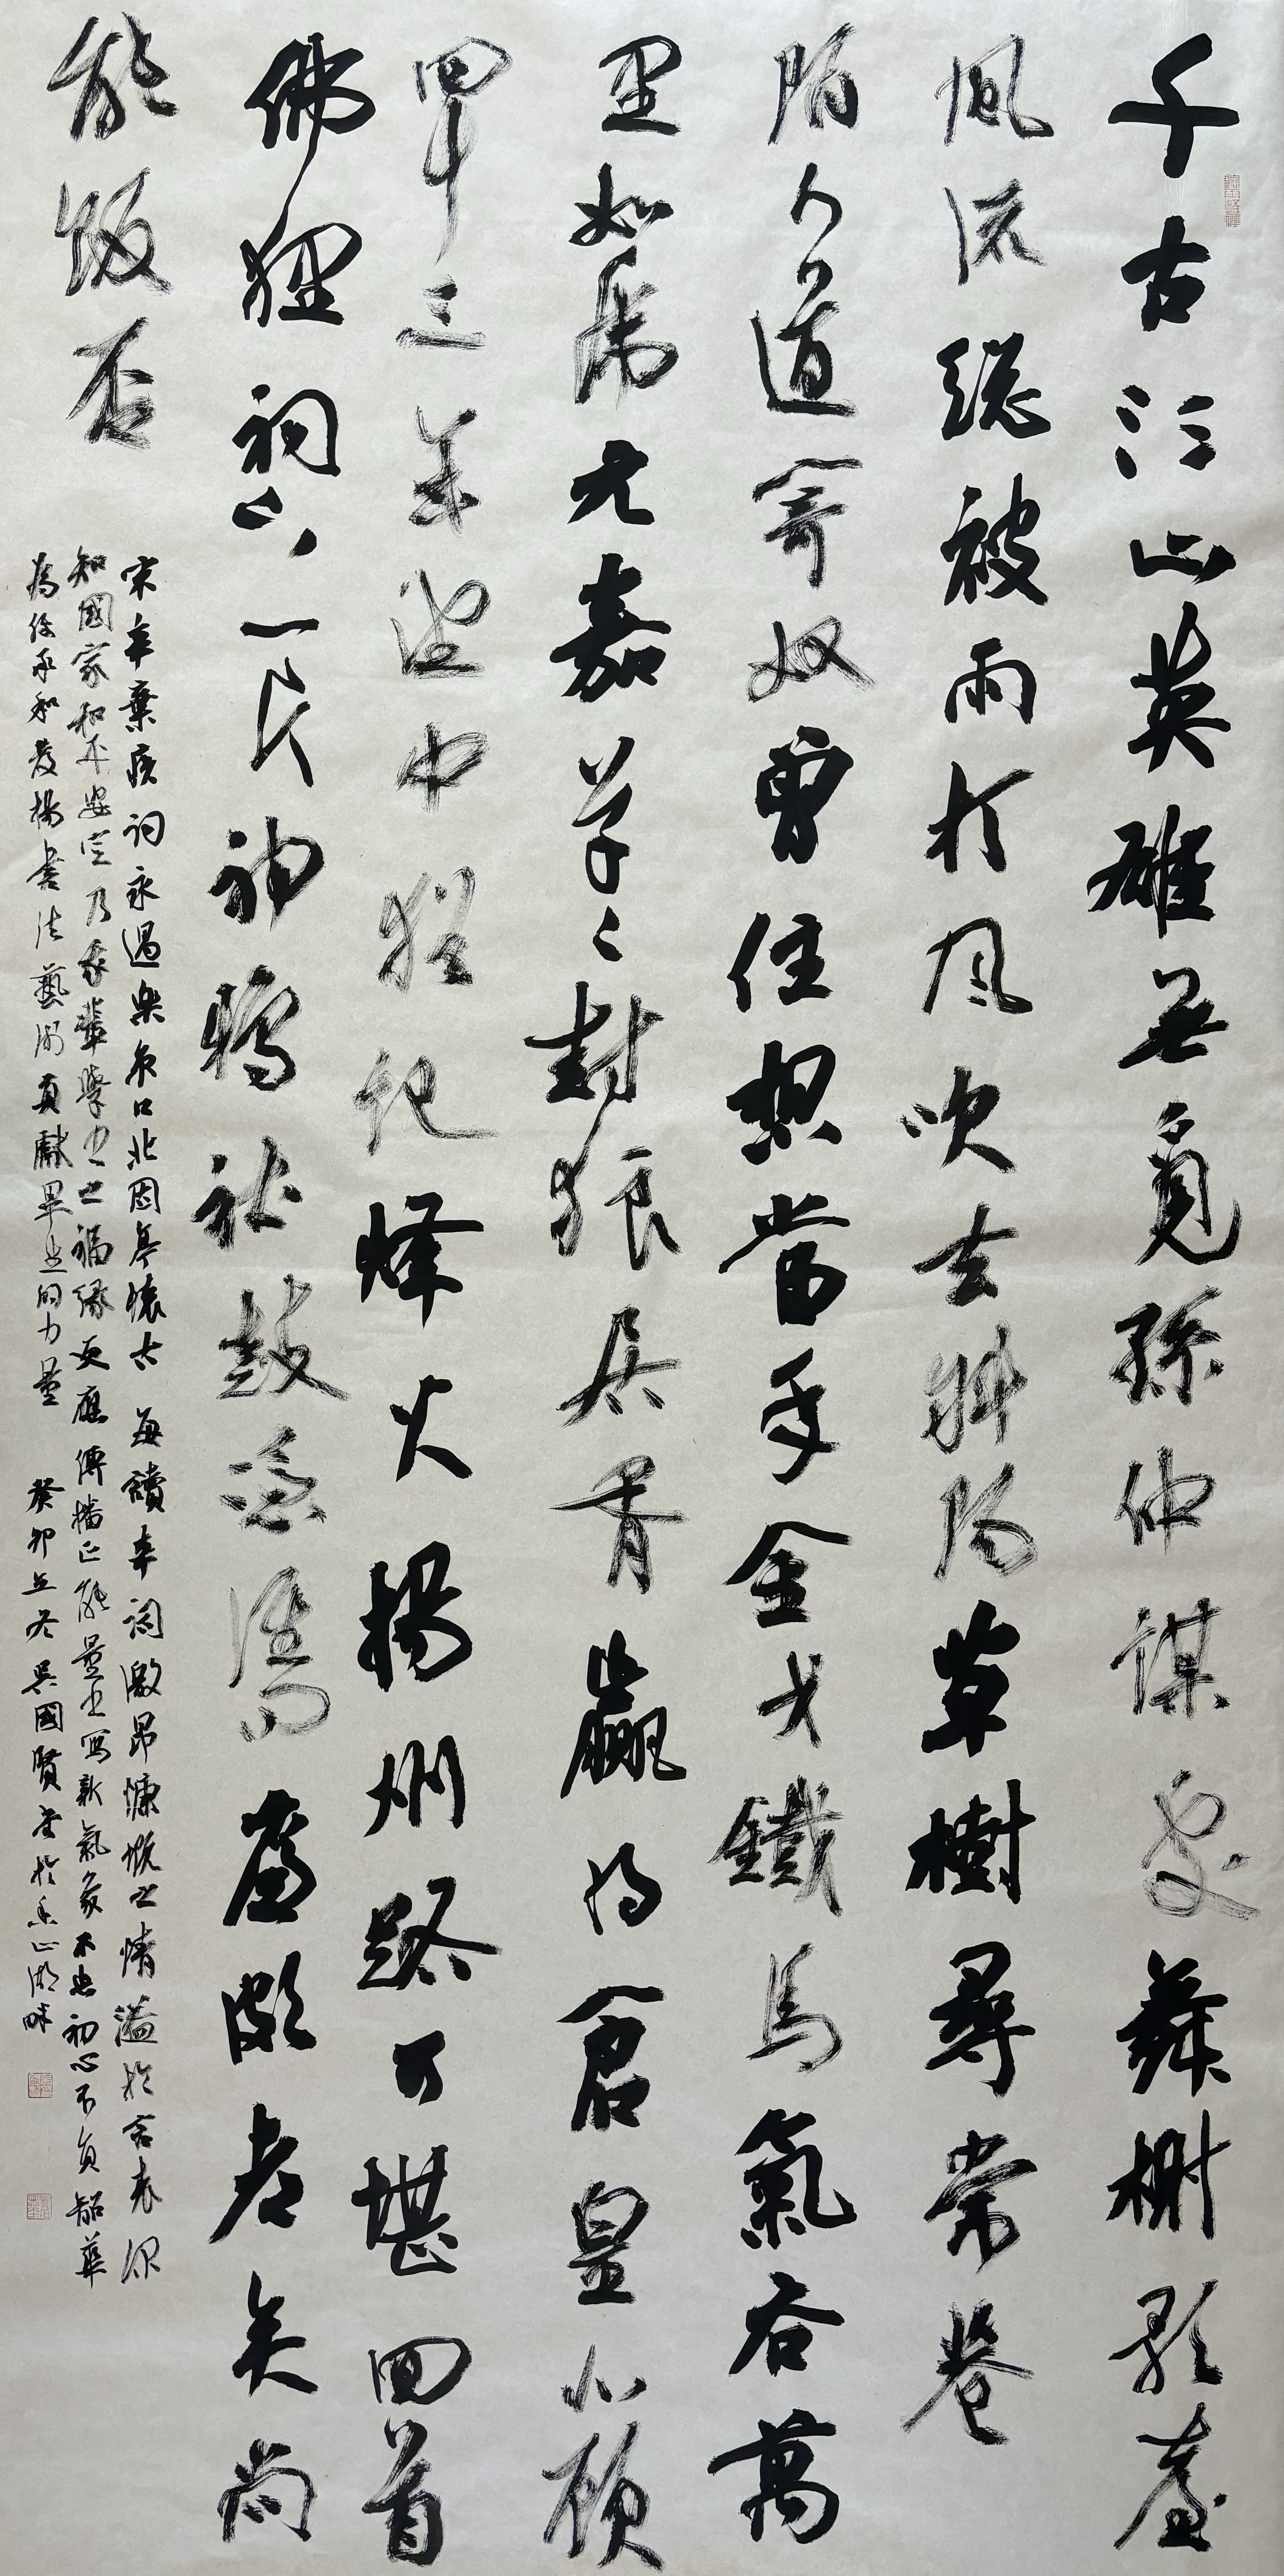 千古江山英雄無覓孫仲謀處舞榭歌臺
風流總被雨打風吹去斜陽草樹尋常巷
陌人道寄奴曾住想當年金戈鐵馬氣吞萬
里如虎元嘉草々封狼居胥贏得倉皇北顧
四十三年望中猶記烽火揚州路可堪回首
佛狸祠下一片神鴉社鼓憑誰問廉頗老矣尚
能飯否
宋辛棄疾詞永遇樂京口北固亭懷古 每讀辛詞激昂慷慨之情溢於言表深
知國家和平安定乃我輩學書之福緣更應傳播正能量書寫新氣象不忘初心不負韶華
為傳承和發揚書法藝術貢獻畢生的力量 癸卯立冬吳國賢書於香山湖畔